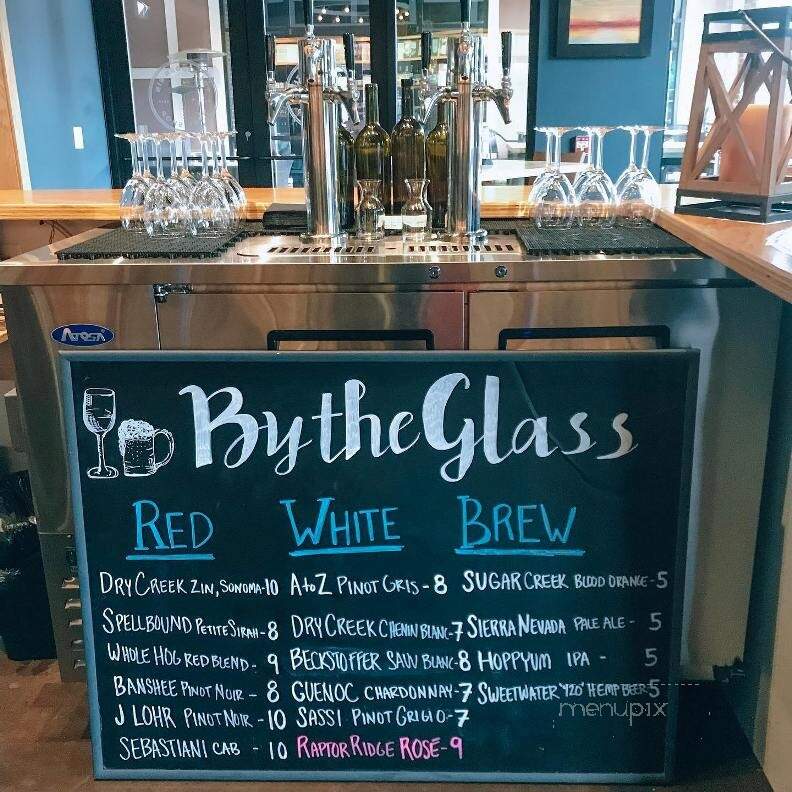 ATOSA
By the Glass
RED WHITE BREW
DRY CREEK ZIN, SONOMA-10 A to Z PINOT GRIS - 8 SUGAR CREEK BLOOD ORANGE - 5
SPELLBOUND PETITE SIRAH - 8 DRY CREEK CHENIN BLANC-7 SIERRA NEVADA PALE ALE - 5
WHOLE HOG RED BLEND - 9 BECKSTOFFER SAUV BLANC-8 HOPPYUM IPA - 5
BANSHEE PINOT NOIR - 8 GUENOC CHARDONNAY-7 SWEETWATER "420" HEMP BEER 5
J LOHR PINOT NOIR - 10 SASSI PINOT GRIGIO-7
SEBASTIANI CAB - 10 RAPTOR RIDGE ROSE-9
menupix